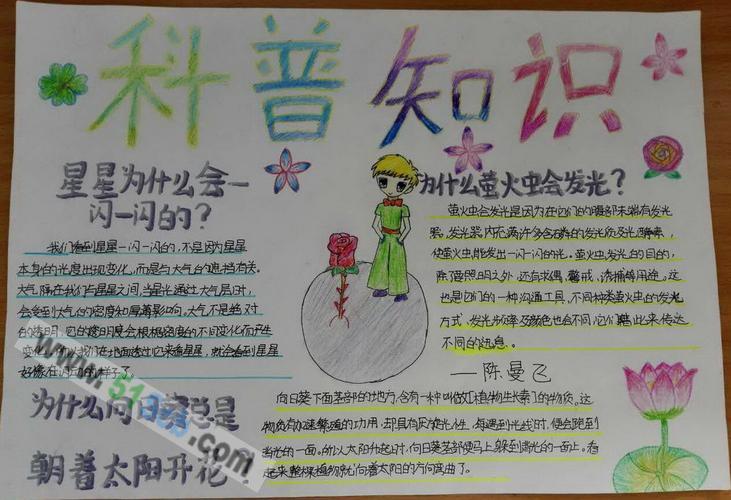 科普知识
星星为什么会一
闪一闪的？
我们看到星星一闪一闪的，不是因为星星
本身的光度出现变化，而是与大气的遮挡有关。
大气隔在我们与星星之间，当星光通过大气层时，
会受到大气的密度和厚薄影响。大气不是绝对
的透明，它的透明度会根据密度的不同变化而产生
变化。所以我们在地面透过它来看星星，就会看到星星
好像在闪动的样子了
为什么萤火虫会发光？
萤火虫会发光是因为在它们的腹部末端有发光
器，发光器内充满许多含磷的发光质及发光酵素，
使萤火虫能发出一闪一闪的光。萤火虫发光的目的，
除了照明之外，还有求偶、警戒、诱捕等用途。这
也是它们的一种沟通工具，不同种类萤火虫的发光
方式、发光频率及颜色也会不同，它们藉此来传达
不同的讯息。
——陈曼飞
为什么向日葵总是
朝着太阳开花
向日葵下面茎部的地方，含有一种叫做【植物生长素】的物质。这
物质有加速繁殖的功用，却具有厌旋光性，每遇到光线时，便会跑到
背光的一面。所以太阳升起时，向日葵茎部便马上躲到背光的一面上。看
起来整棵植物就向着太阳的方向弯曲了。
www.51355.com